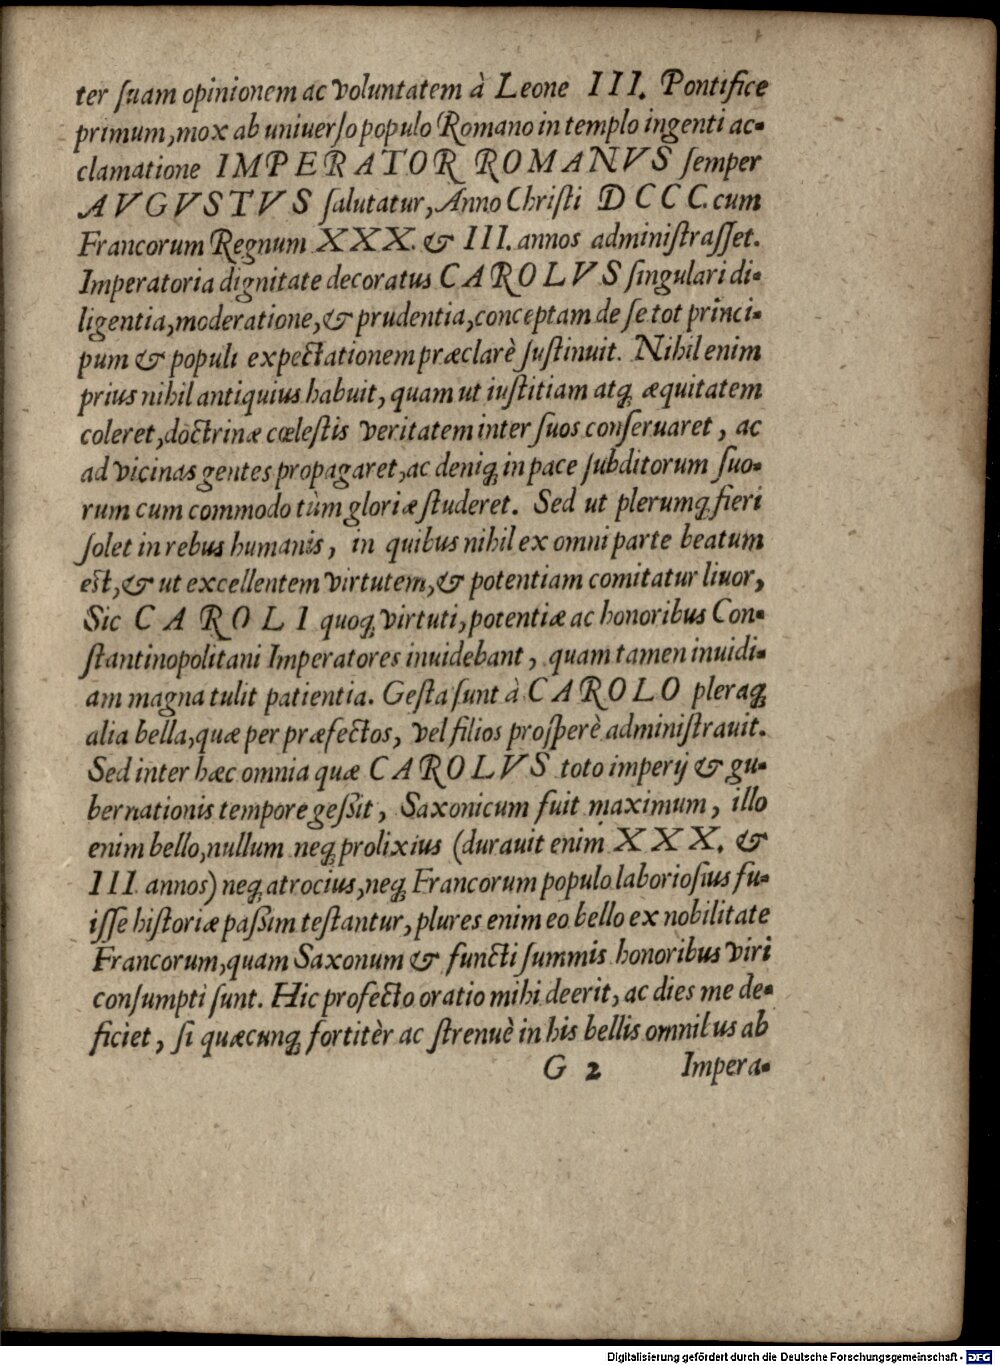 ter ſuam opinionem ac voluntatem à Leone III. Pontifice
primum, mox ab uniuerſo populo Romano in templo ingenti ac-
clamatione IMPERATOR ROMANVS ſemper
AVGVSTVS ſalutatur, Anno Chriſti DCCC. cum
Francorum Regnum XXX. & III. annos adminiſtraſſet.
Imperatoria dignitate decoratus CAROLVS ſingulari di-
ligentia, moderatione, & prudentia, conceptam de ſe tot princi-
pum & populi expectationem præclarè ſuſtinuit. Nihil enim
prius nihil antiquius habuit, quam ut iuſtitiam atq; æquitatem
coleret, doctrinæ cœleſtis veritatem inter ſuos conſeruaret, ac
ad vicinas gentes propagaret, ac deniq; in pace ſubditorum ſuo-
rum cum commodo tùm gloriæ ſtuderet. Sed ut plerumq; fieri
ſolet in rebus humanis, in quibus nihil ex omni parte beatum
eſt, & ut excellentem virtutem, & potentiam comitatur liuor,
Sic CAROLI quoq; virtuti, potentiæ ac honoribus Con-
ſtantinopolitani Imperatores inuidebant, quam tamen inuidi-
am magna tulit patientia. Geſta ſunt à CAROLO pleraq;
alia bella, quæ per præfectos, vel filios proſperè adminiſtrauit.
Sed inter hæc omnia quæ CAROLVS toto imperij & gu-
bernationis tempore geßit, Saxonicum fuit maximum, illo
enim bello, nullum neq; prolixius (durauit enim XXX. &
III. annos) neq; atrocius, neq; Francorum populo laborioſius fu-
iſſe hiſtoriæ paßim teſtantur, plures enim eo bello ex nobilitate
Francorum, quam Saxonum & functi ſummis honoribus viri
conſumpti ſunt. Hic profecto oratio mihi deerit, ac dies me de-
ficiet, ſi quæcunq; fortitèr ac ſtrenuè in his bellis omnibus ab
G 2 Impera-
Digitalisierung gefördert durch die Deutsche Forschungsgemeinschaft - DFG